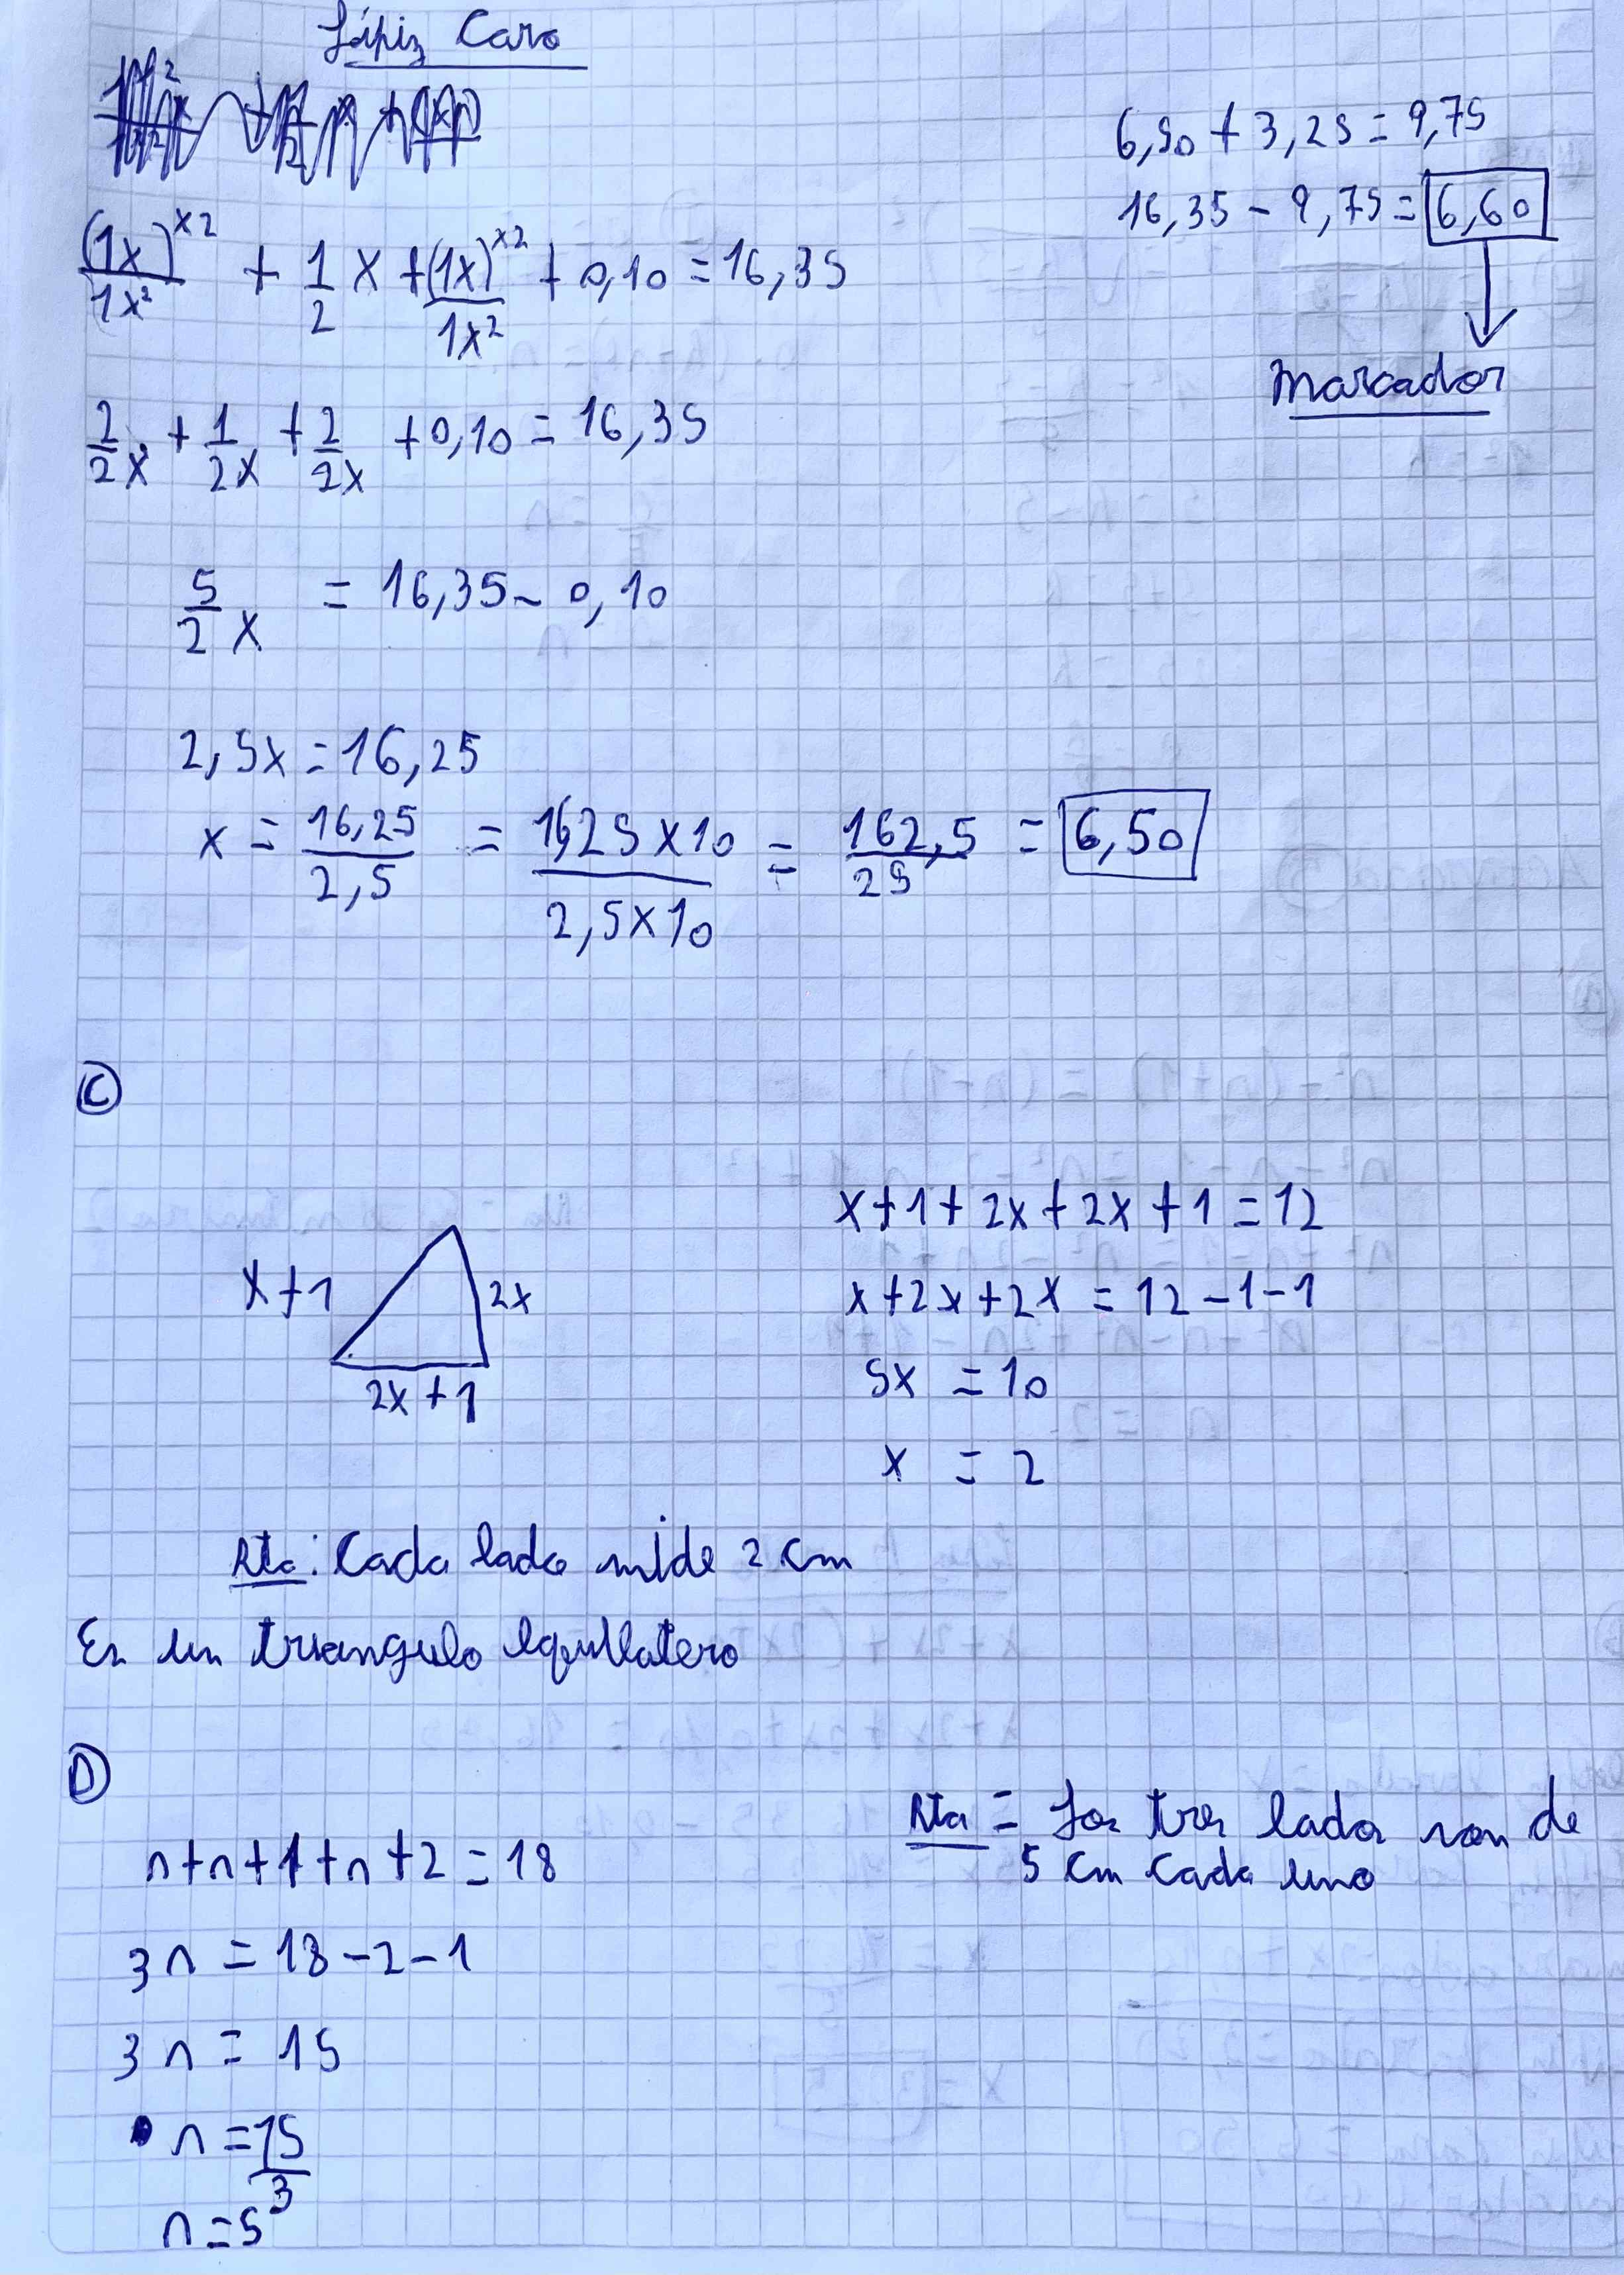 Lápiz Caro
(1x)^x2/1x2 + 1/2 x + (1x)^x2/1x2 + 0,10 = 16,35
2/2x + 1/2x + 2/2x + 0,10 = 16,35
5/2 x = 16,35 - 0,10
2,5x = 16,25
x = 16,25/2,5 = 16,25 x 10/2,5 x 10 = 162,5/25 = 6,50
6,50 + 3,25 = 9,75
16,35 - 9,75 = 6,60
Marcador
C
x+1
2x
2x+1
x+1+2x+2x+1=12
x+2x+2x = 12-1-1
5x = 10
x = 2
Rta: Cada lado mide 2 cm
Es un triangulo equilatero
D
n+n+1+n+2=18
3n = 18-2-1
3n = 15
n = 15/3
n = 5
Rta = Los tres lados son de
5 cm cada uno